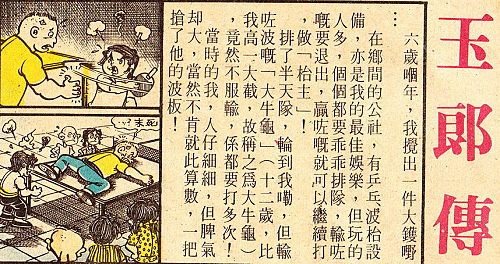 玉郎傳
六歲嗰年，我攪出一件大鑊嘢
…
在鄉間的公社，有乒乓波枱設
備，亦是我的最佳娛樂，但玩的
人多，個個都要乖乖排隊，輸咗
嘅要退出，贏咗嘅就可以繼續打
，做「枱主」！
排了半天隊，輪到我嘞，但輸
咗波嘅「大牛龜」（十二歲，比
我高一大截，故稱之爲大牛龜）
，竟然不服輸，係都要打多次！
當時的我，人仔細細，但脾氣
却大，當然不肯就此算數，一把
搶了他的波板！
死未…?